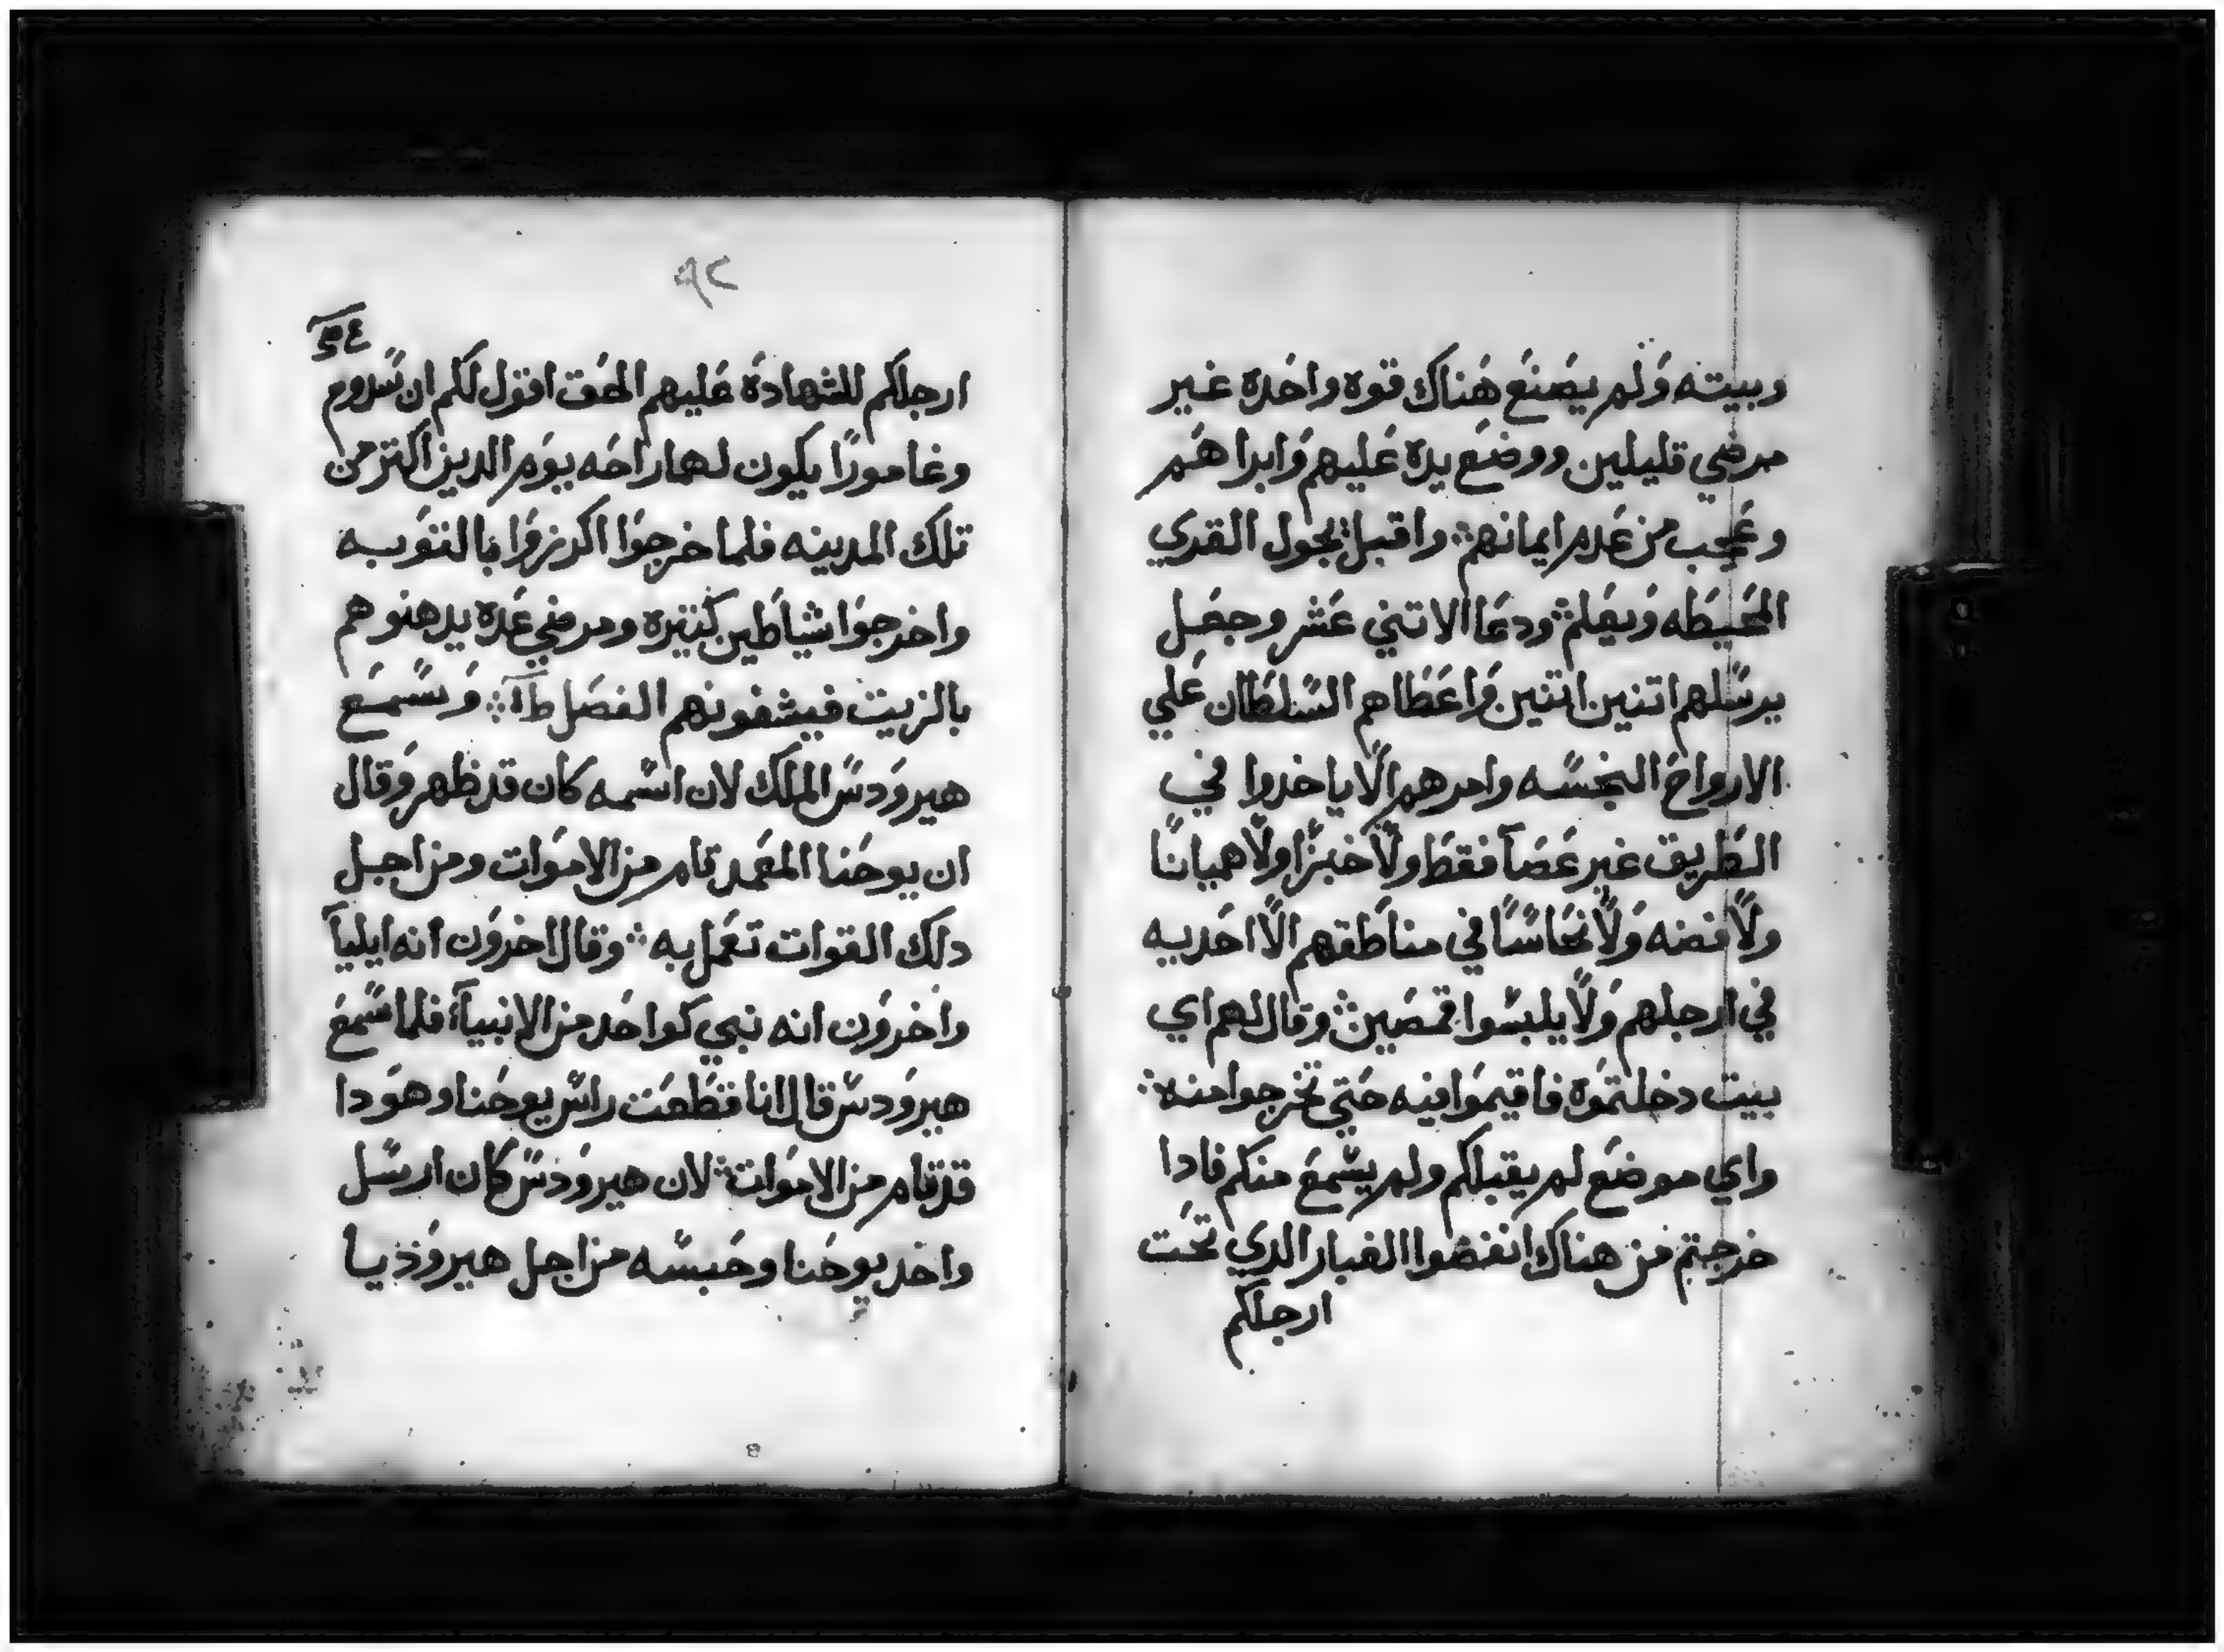 وبيته ولم يصنع هناك قوه واحده غير
مرضي قليلين ووضع يده عليهم وابراهم
وعجب من عدم ايمانهم ؞ واقبل يجول القري
المحيطه ويعلم ؞ ودعا الاتني عشر وجعل
يرسلهم اتنين اتنين واعطاهم السلطان علي
الارواح النجسه وامرهم الا ياخدوا في
الطريق غير عصا فقط ولا خبزا ولا هميانا
ولا فضه ولا نحاسا في مناطقهم الا احديه
في ارجلهم ولا يلبسوا قمصين ؞ وقال لهم اي
بيت دخلتموه فاقيموا فيه حتي تخرجوا منه ؞
واي موضع لم يقبلكم ولم يسمع منكم فادا
خرجتم من هناك انفضوا الغبار الدي تحت
ارجلكم
٩٢
ارجلكم للشهادة عليهم الحق اقول لكم ان سدوم
وغامورا يكون لها راحه يوم الدين اكتر من
تلك المدينه فلما خرجوا اكرزوا بالتوبه
واخرجوا شياطين كتيره ومرضي عده يدهنوهم
بالزيت فيشفونهم الفصل ؞ وسمع
هيرودس الملك لان اسمه كان قد ظهر وقال
ان يوحنا المعمد قام من الاموات ومن اجل
دلك القوات تعمل به ؞ وقال اخرون انه ايليا
واخرون انه نبي كواحد من الانبيآء فلما سمع
هيرودس قال انا قطعت راس يوحنا وهودا
قد قام من الاموات ؞ لان هيرودس كان ارسل
واخد يوحنا وحبسه من اجل هيروذيا